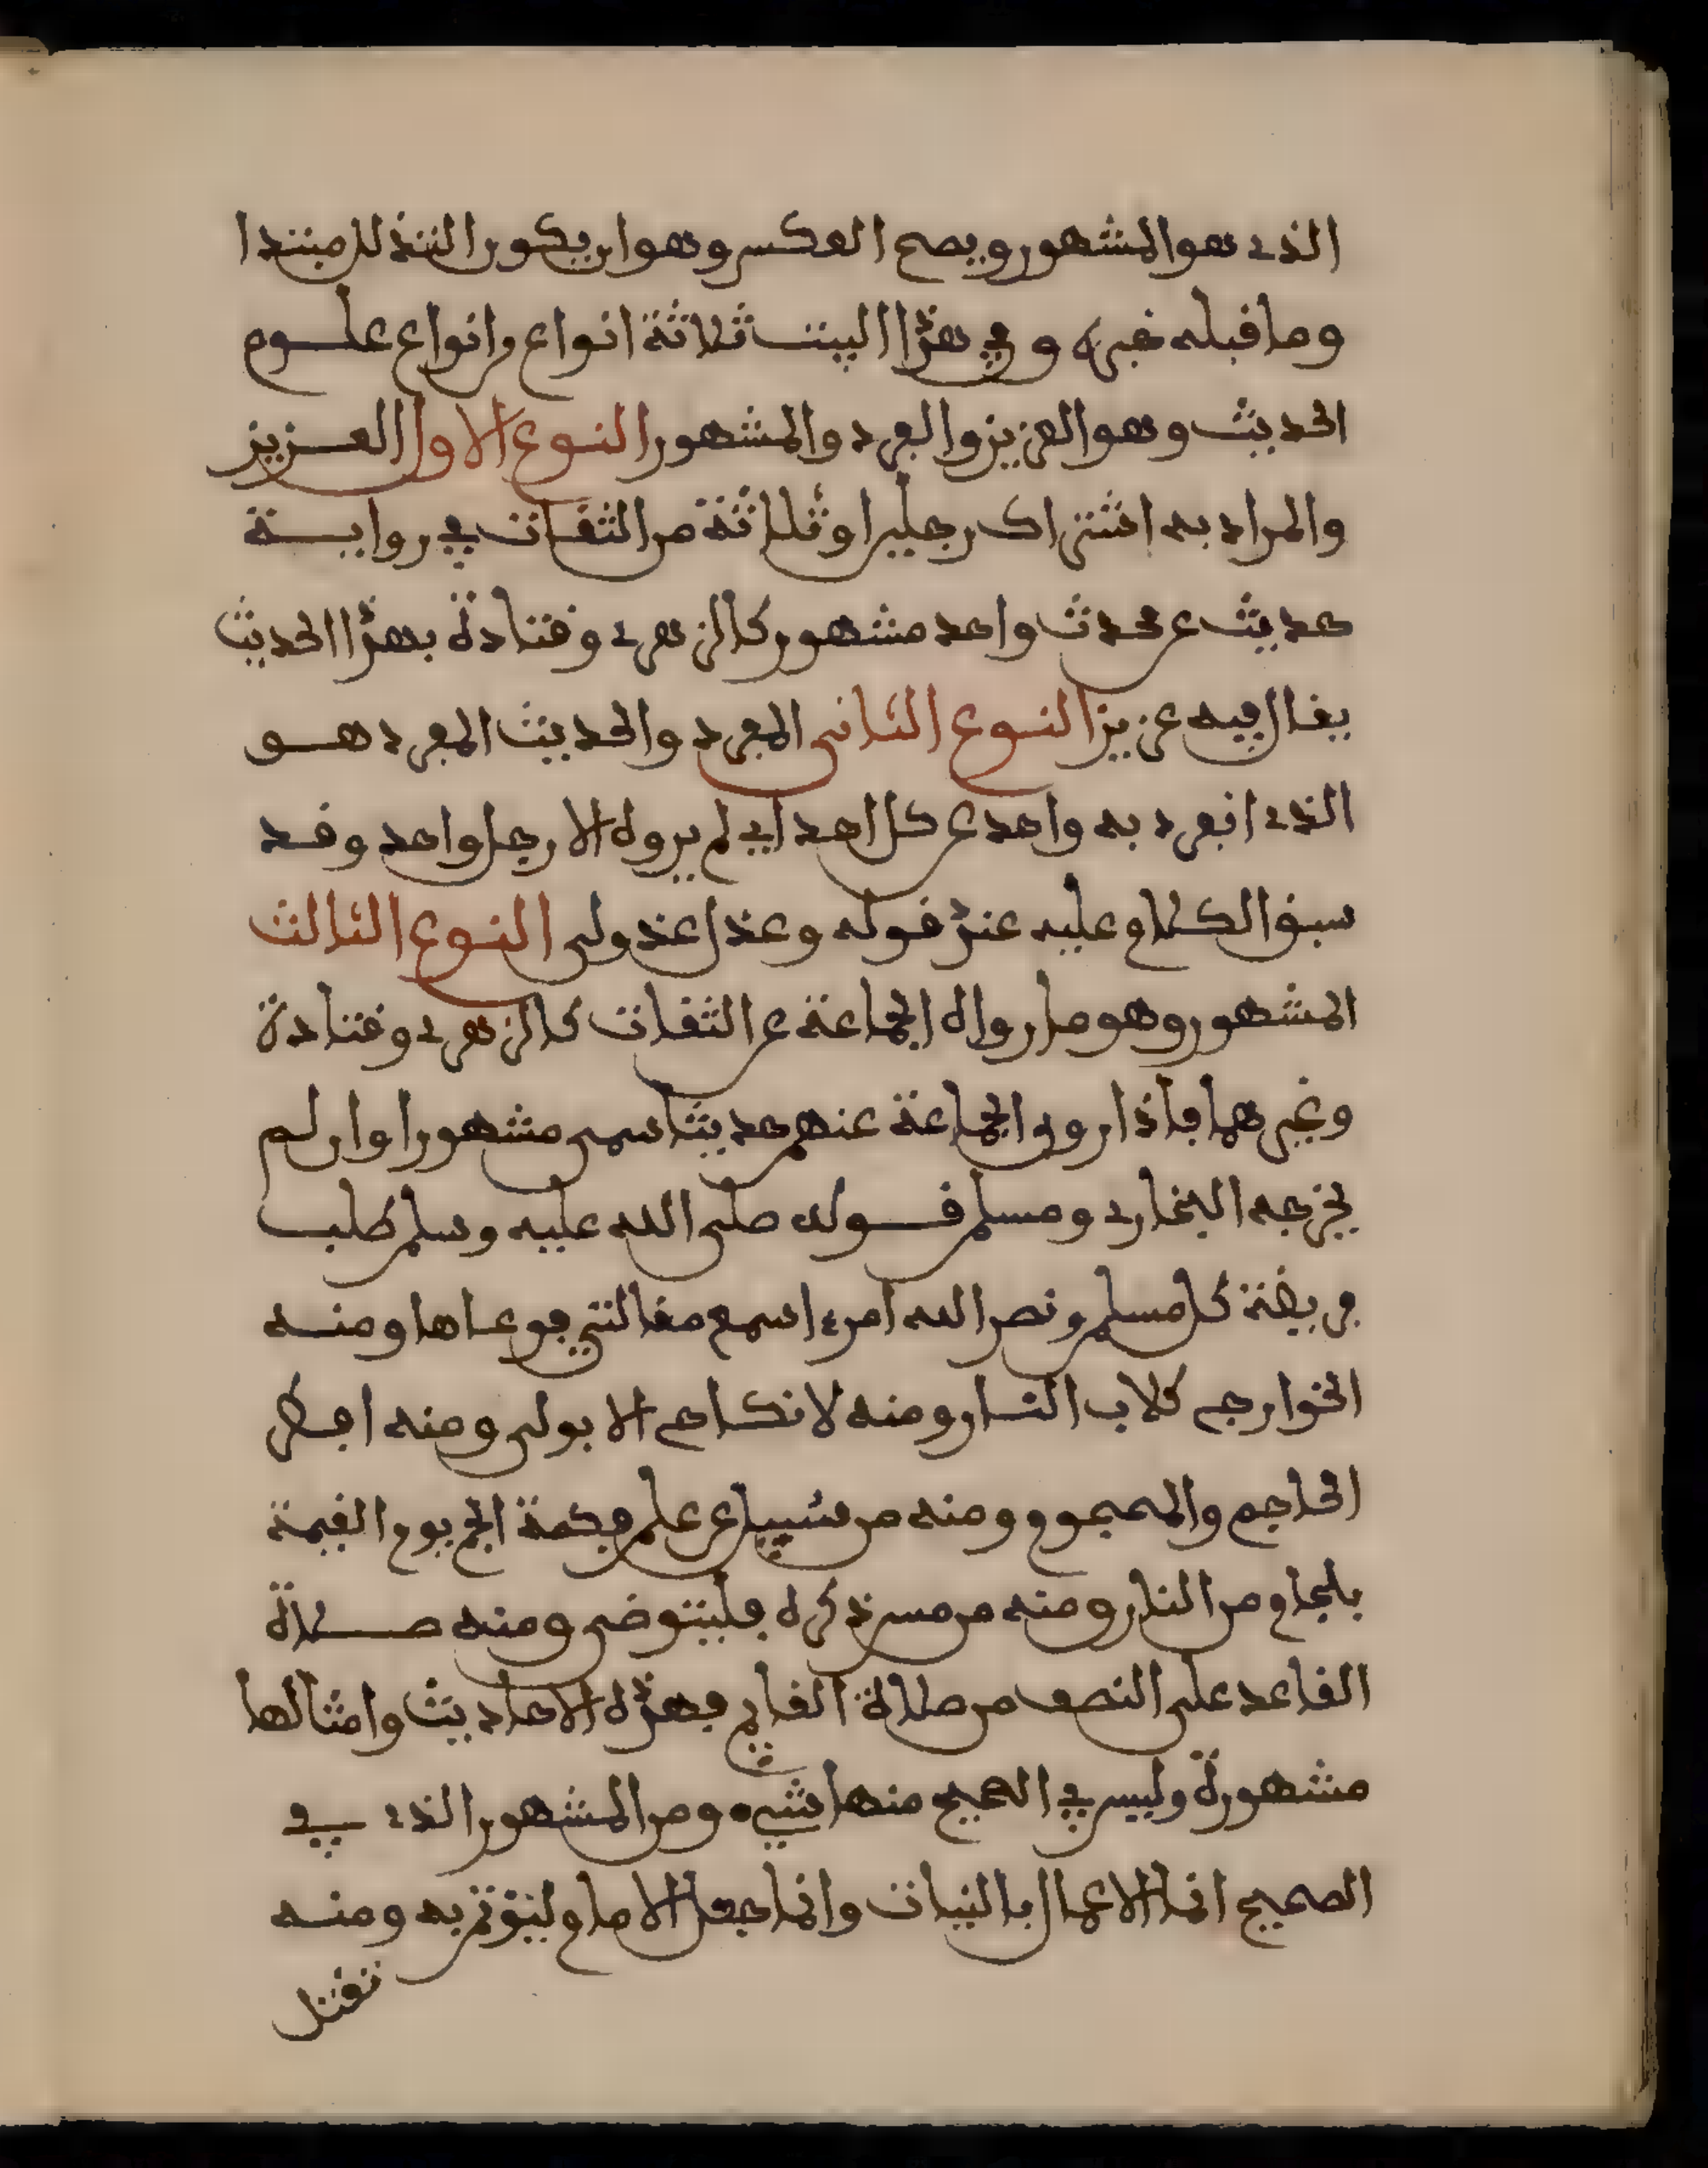 الذي هو المشهور ويصح العكس وهو ان يكون التذلل مبتدا
وما قبله خبره وفي هذا البيت ثلاثة انواع من انواع علوم
الحديث وهو العزيز والفرد والمشهور النوع الاول العزيز
والمراد به اشتراك رجلين او ثلاثة من الثقات في رواية
حديث عن محدث واحد مشهور كالزهري وقتادة بهذا الحديث
يقال فيه عزيز النوع الثاني المفرد والحديث المفرد هو
الذي انفرد به واحد عن كل احد اي لم يروه الا رجل واحد وقد
سبق الكلام عليه عند قوله وعذل عذولي النوع الثالث
المشهور وهو ما رواه الجماعة عن الثقات كالزهري وقتادة
وغيرهما فاذا روى الجماعة عنهم حديثا سمي مشهورا وان لم
يخرجه البخاري ومسلم قوله صلى الله عليه وسلم طلب
فريضة كل مسلم ونضر الله امرءا سمع مقالتي فوعاها ومنه
الخوارج كلاب النار ومنه لا نكاح الا بولي ومنه افطر
الحاجم والمحجوم ومنه من سئل عن علم فكتمه الجم يوم القيمة
بلجام من النار ومنه من مس ذكره فليتوضى ومنه صلاة
القاعد على النصف من صلاة القايم فهذه الاحاديث وامثالها
مشهورة وليس في الصحيح منها شيء ومن المشهور الذي في
الصحيح انما الاعمال بالنيات وانما جعل الامام ليؤتم به ومنه
تقتل